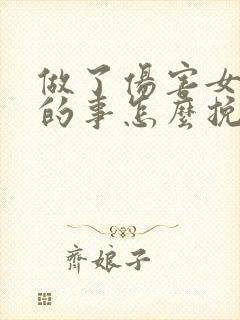 做了傷害女
的事怎麼挽
齊娘子